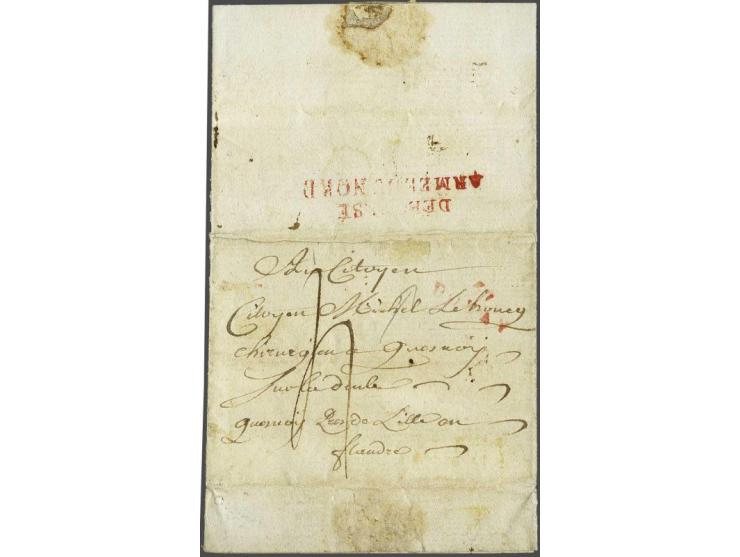 DEB SÉ
ARMÉE DU NORD
Au Citoyen
Citoyen Michel Lehoucq
chirurgien a quesnoij
sur la deule
quesnoij Pres de Lille en
flandre